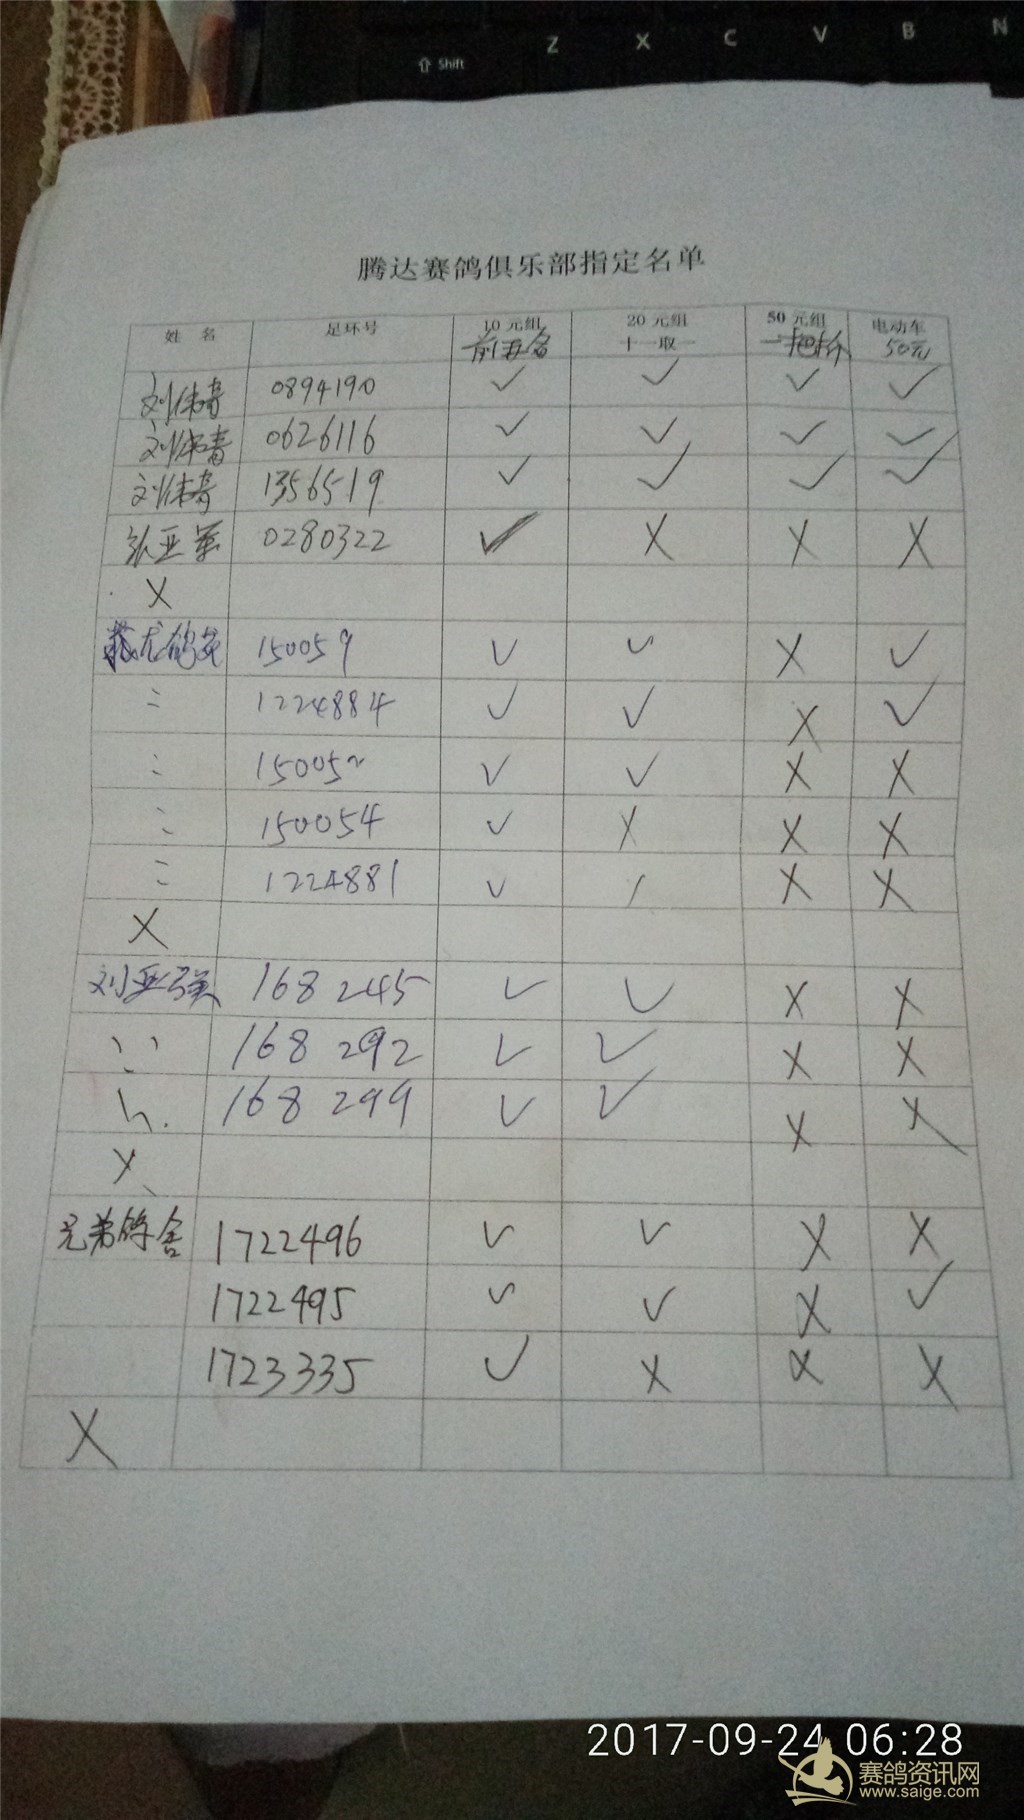 Z X C V B N
⇧ Shift
腾达赛鸽俱乐部指定名单
姓 名 足环号 10元组 20元组 50元组 电动车
前五名 十一取一 一把抓 50元
刘伟青 0894190 ✓ ✓ ✓ ✓
刘伟青 0626116 ✓ ✓ ✓ ✓
刘伟青 1356519 ✓ ✓ ✓ ✓
张亚军 0280322 ✓ X X X
X
龙鸽苑 150059 ✓ ✓ X ✓
1224884 ✓ ✓ X ✓
15005 ✓ ✓ X X
150054 ✓ X X X
1224881 ✓ X X
X
刘亚强 168 245 ✓ ✓ X X
168 292 ✓ ✓ X X
168 299 ✓ ✓ X X
X
兄弟鸽舍 1722496 ✓ ✓ X X
1722495 ✓ ✓ X ✓
1723335 ✓ X X X
X
2017-09-24 06:28
赛鸽资讯网
www.saige.com